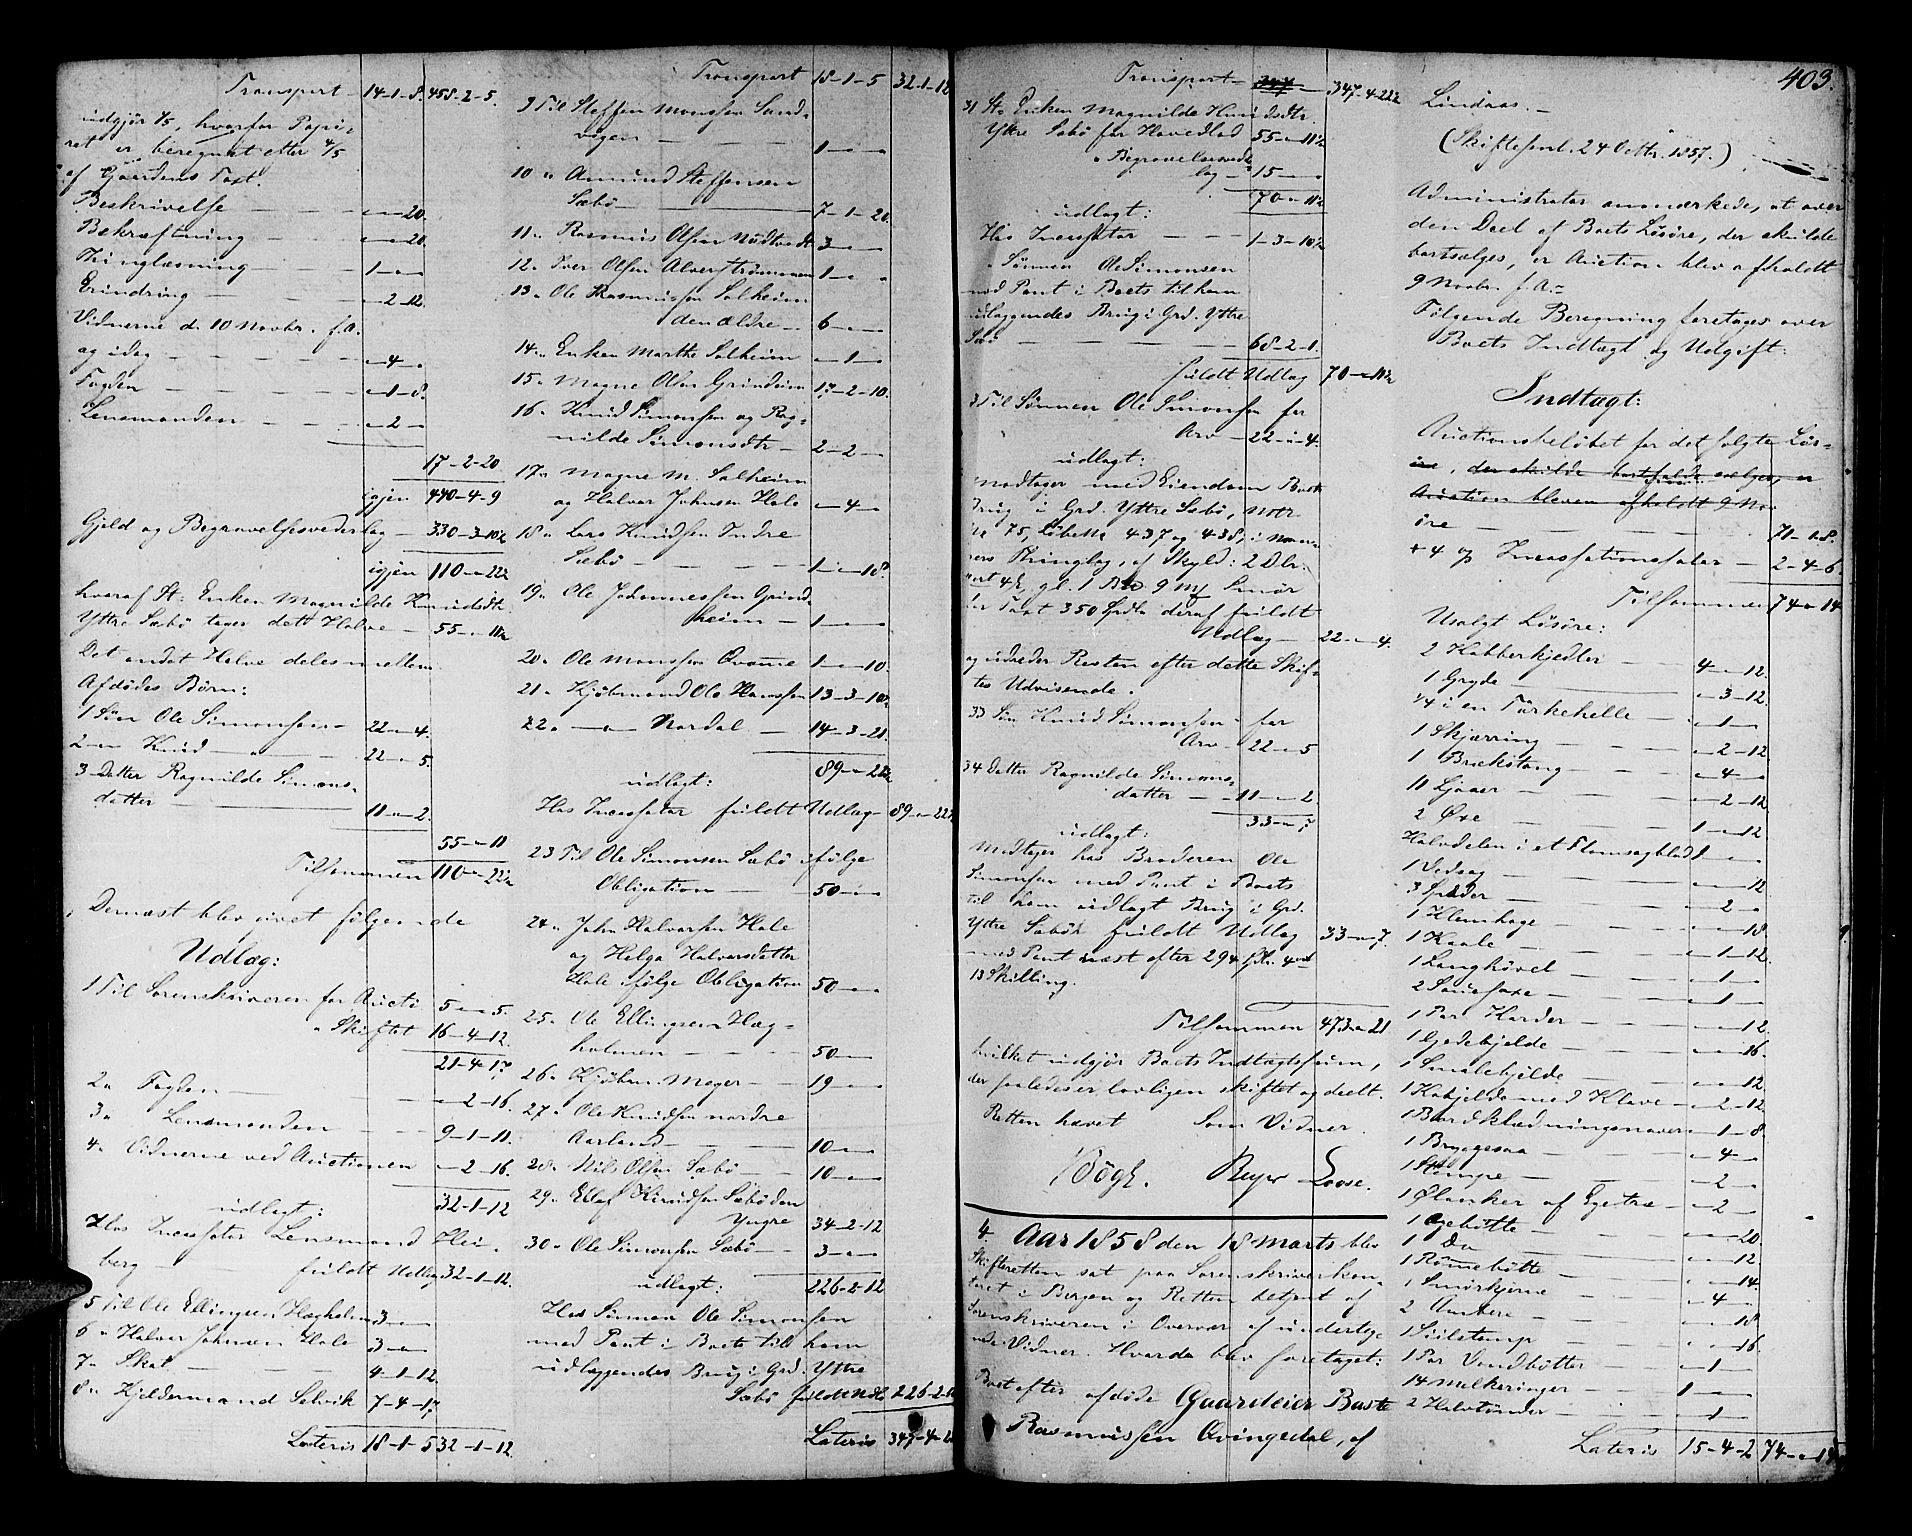 Transport 14-1-8. 458-2-5.
udgjør 4/5, hvorfor Papi-
ret er beregnet efter 4/5
af Gaardens Taxt.
Beskrivelse - - - " - " - 20.
Bekræftning - - " - " - 20.
Thinglæsning - - 1 - " - "
Erindring - - " - 2 - 12.
Vidnerne d. 10 Novbr. f.A.
og idag - - - " - 4 - "
Fogden - - - " - 1 - 8.
Lensmanden - - " - 2 - "
17-2-20
igjen 440-4-9
Gjeld og Begravelsesvederlag - 330-3-10½
igjen 110-"-22½
hvoraf St: Enken Magnilde Knudsdtr.
Yttre Sæbø tager dett Halve - 55-"-11½
Det andet Halve deles mellem
Afdødes Børn:
1 Søn Ole Simonsen - 22-"-4.
2 - " Knud - " - 22-"-5.
3 Datter Ragnilde Simons-
datter - 11-"-2.
55-"-11
Tilsammen 110-"-22½
Dernæst blev givet følgende
Udlæg:
1 Til Sorenskriveren for Aucti 5-"-5.
" Skiftet 16-4-12.
21-4-17
2 " Fogden - - " -2-16.
3 " Lensmanden - - 9-1-11.
4 " Vidnerne ved Auctionen " -2-16.
32-1-12
udlagt:
Hos Incassator Lensmand Hei-
berg - - fuldt Udlæg 32-1-12.
5 Til Ole Ellingsen Hægholmen 3-"-"
6 " Halvor Johnsen Hole 3-"-"
7 " Skat - - 4-1-12.
8 " Kjeldermand Selvik 7-4-17.
Lateris 18-1-5 32-1-12
Transport 18-1-5 32-1-12
9 Til Steffen Monssen Sand-
vigen - - - 1-"-"
10 " Amund Steffensen
Sæbø - 7-1-20.
11 " Rasmus Olsen Nødtvedt 3-"-"
12 " Iver Olsen Alverstrømmen 1-"-"
13 " Ole Rasmussen Solheim
den ældre - 6-"-"
14 " Enken Marthe Solheim " -1-"
15 " Mogne Olsen Grindeim 17-2-10.
16 " Knud Simonsen og Rag-
nilde Simonsdtr - 2-2-"
17 " Mogne M. Solheim
og Halvor Johnsen Hole " -4-"
18 " Lars Knudsen Indre
Sæbø - - - 1-"-18.
19 " Ole Johannessen Grind-
heim - - 1-"-"
20 " Ole Monssen Qvamme 1-"-10
21 " Kjøbmand Ole Hanssen 13-3-10½
22 " - " - Nordal - 14-3-21.
89-"-22½
udlagt:
Hos Incassator fuldt Udlæg - 89-"-22½
23 Til Ole Simonsen Sæbø ifølge
Obligation - 50-"-"
24 " John Halvorsen Hole
og Helga Halvorsdatter
Hole ifølge Obligation 50-"-"
25 " Ole Ellingsen Hæg-
holmen - - - 50-"-"
26 " Kjøbm. Meyer - 19-"-"
27 " Ole Knudsen nordre
Aarland - - 10-"-"
28 " Nils Olsen Sæbø - 10-"-"
29 " Ellef Knudsen Sæbø den
Yngre 34-2-12
30 " Ole Simonsen Sæbø - 3-"-"
udlagt: 226-2-12
Hos Sønnen Ole Simonsen
med Pant i Boets till ham
udlæggendes Brug i Grd. Yttre
Sæbø fuldt Udl. 226-2-12
Lateris 347-4-22½
403.
Transport 347-4-22½
31 St. Enken Magnilde Knudsdtr.
Yttre Sæbø for Hovedlod 55-"-11½
" Begravelsesveder-
lag - 15-"-"
70-"-11½
udlagt:
Hos Incassator - - 1-3-10½
" Sønnen Ole Simonsen
med Pant i Boets til ham
udlæggendes Brug i Grd. Yttre
Sæbø - - - 68-2-1.
fuldt Udlæg 70-"-11½
3 Til Sønnen Ole Simonsen for
Arv - 22-"-4.
udlagt:
Modtager med Eiendom Boets
Brug i Grd. Yttre Sæbø, Matr.
No 75, Løbe No 437 og 438, i
Thinglag, af Skyld: 2 Dlr.
ort 4 ß, gl. 1 B 9 mk Smør
for Taxt 350 Spdlr deraf fuldt
Udlæg - 22-"-4.
og udreder Resten efter dette Skif-
tes Udvisende.
33 Søn Knud Simonsen for
Arv - 22-"-5
34 Datter Ragnilde Simons-
datter - - 11-"-2.
33-"-7
udlagt:
Modtager hos Broderen Ole
Simonsen med Pant i Boets
til ham udlagt Brug i Grd.
Yttre Sæbø fuldt Udlæg 33-"-7.
med Pant næst efter 294 Spdlr. 4 ort
13 Skilling.
Tilsammen 473-"-21
hvilket udgjør Boets Indtægtssum,
der saaledes er lovligen skiftet og deelt.
Retten hævet Som Vidner.
Bøgh. Reyer Loose.
4. Aar 1858 den 18 Marts blev
Skifteretten sat paa Sorenskriverkon-
toret i Bergen og Retten betjent af
Sorenskriveren i Overvær af underteg-
nede Vidner. Hvorda blev foretaget:
Boet efter afdøde Gaardeier Baste
Rasmussen Qvingedal, af
Lindaas. -
(Skiftesml. 24 Octbr. 1857.)
Administrator anmærkede, at over
den Deel af Boets Løsøre, der skulde
bortsælges, er Auction blev afholdt
9 Novbr. f.A. -
Følgende Beregning foretages over
Boets Indtægt og Udgift:
Indtægt:
Auctionsbeløbet for det solgte Løs-
øre, der skulde bortsælges, er
Auction bleven afholdt 9 Nov
øre - - - 71-1-8.
+ 4 % Incassationssaler - 2-4-6.
Tilsammen 74-"-14
Usolgt Løsøre:
2 Kobberkjedler - 4-"-12.
1 Gryde - " -3-12.
1/4 i en Tørkehelle - " -1-"
1 Skjærring - - " -2-12
1 Brækstang - " -4-"
11 Ljaaer - - " -2-12
2 Øxe - - 1-"-12
Halvdelen i et Flomsagblad 1-"-"
1 Vedsag - - " - " -12
3 Spader - - " -2-"
1 Klemhage - - " - " -18
1 Knale - - " -1-12.
1 Langhøvel - " -1-"
2 Sauesaxe - - " -1-"
1 Par Karder - " - " -12
1 Gjedebjelde - " - " -16.
1 Smalebjelde - " - " -12
1 Kobjelde med Klave - " -2-12
1 Bordklædningsnaver - " -1-8.
1 Bryggesaa - " -4-"
1 Stampe - " -2-"
1 Ølanker af Egetræ - " -2-"
1 Øgebøtte - " - " -20
1 Do - - " - " -12
1 Rømmebøtte - " - " -14.
1 Smørkjerne - " -4-"
2 Ambere - - " - " -18
1 Siilestamp - " - " -16.
1 Par Vandbøtter - " -1-"
14 Melkeringer - 1-"-"
2 Halvtønder - " -1-"
Lateris 15-4-2 74-"-14